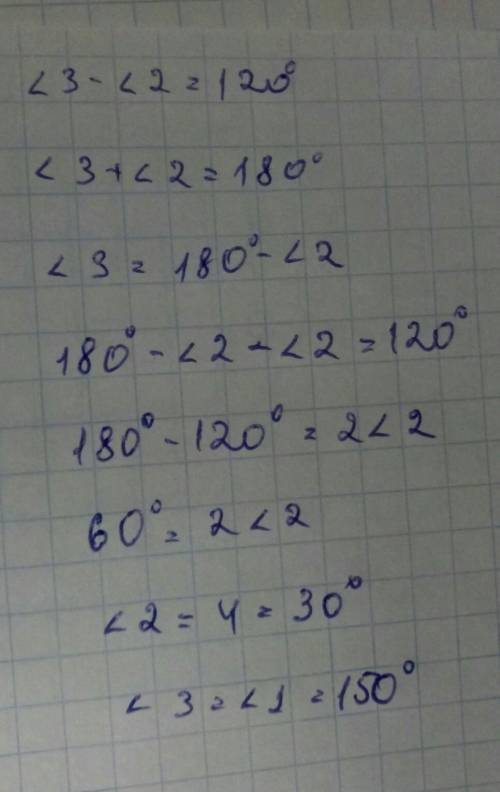 < 3 - < 2 = 120°
< 3 + < 2 = 180°
< 3 = 180° - < 2
180° - < 2 - < 2 = 120°
180° - 120° = 2 < 2
60° = 2 < 2
< 2 = 4 = 30°
< 3 = < 1 = 150°